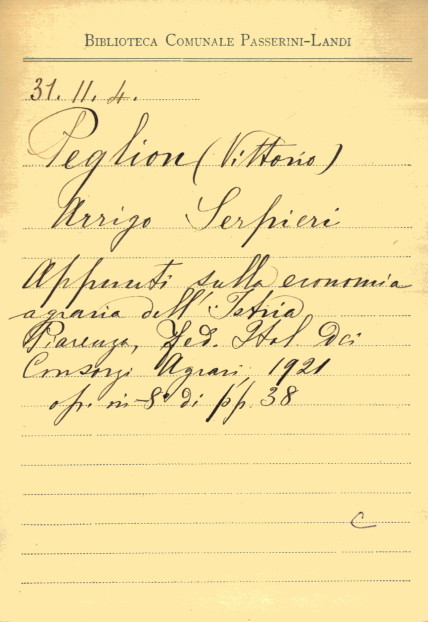 BIBLIOTECA COMUNALE PASSERINI-LANDI
31. II. 4.
Peglion (Vittorio)
Arrigo Serpieri
Appunti sulla economia
agraria dell' Istria
Piacenza, Fed. Ital. Dei
Consorzi Agrari, 1921
op. in-8° di pp. 38
C